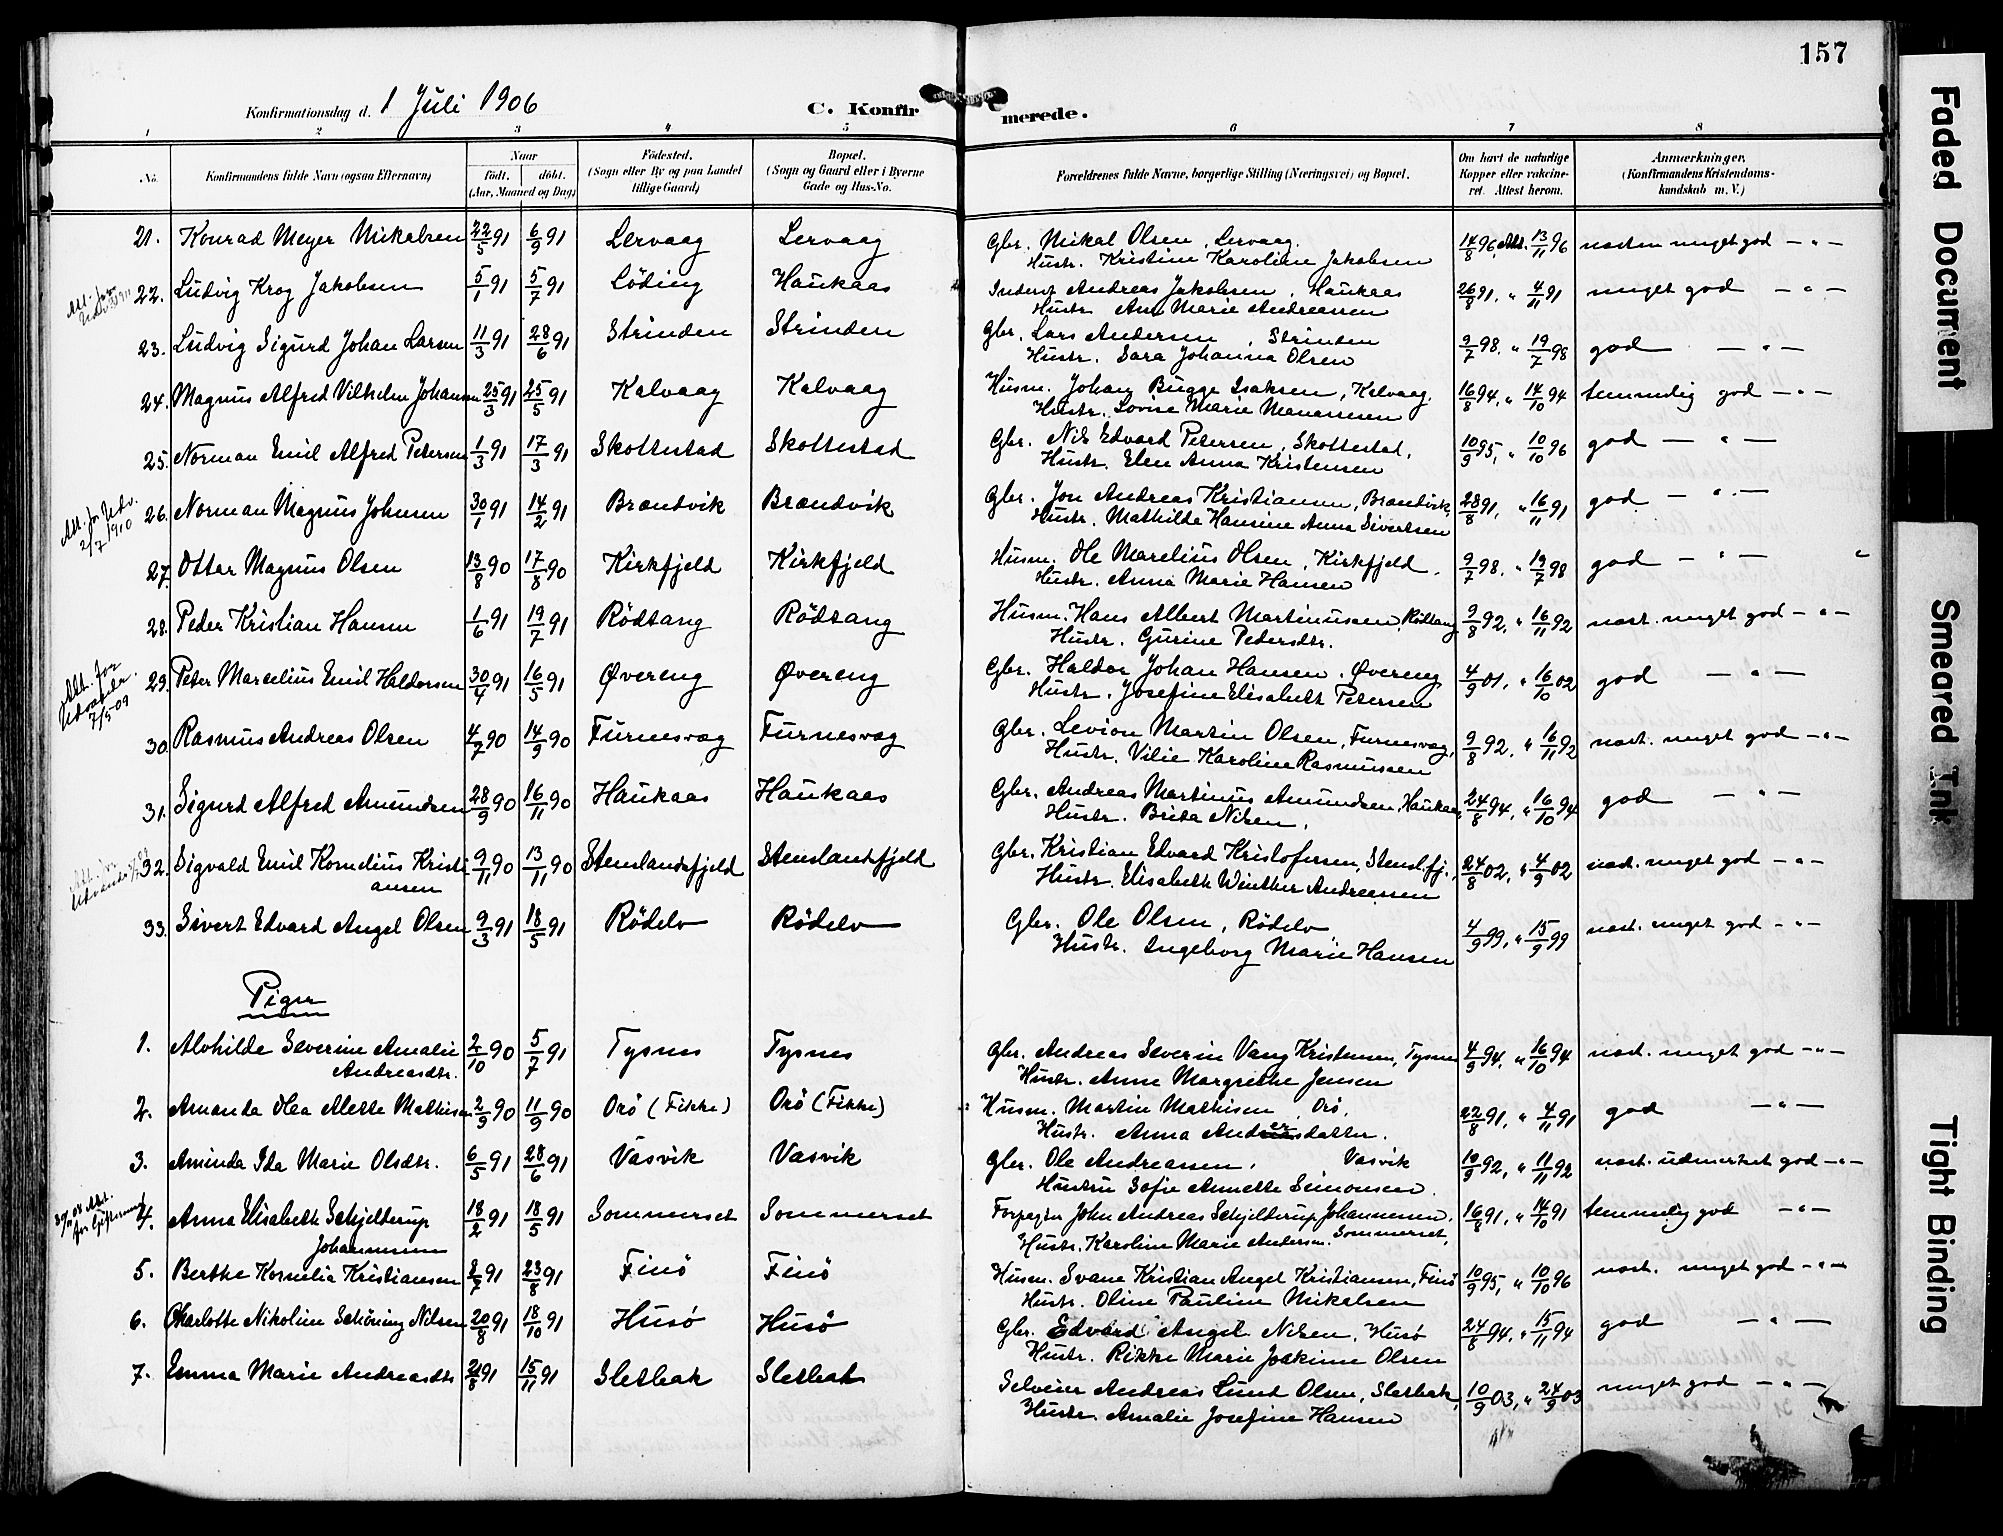 157
Konfirmationsdag d. 1 Juli 1906 C. Konfirmerede.
1 2 3 4 5 6 7 8
No. Konfirmandens fulde Navn (ogsaa Efternavn) Naar født. døbt. (Aar, Maaned og Dag) Fødested. (Sogn eller By og paa Landet tillige Gaard) Bopæl. (Sogn og Gaard eller i Byerne Gade og Hus-No. Forældrenes fulde Navne, borgerlige Stilling (Næringsvei) og Bopæl. Om havt de naturlige Kopper eller vakcineret. Attest herom. Anmærkninger. (Konfirmandens Kristendomskundskab m. V.)
21. Konrad Meyer Mikalsen 22/5 91 6/9 91 Lervaag Lervaag Gbr. Mikal Olsen, Lervaag. 14/8 96, Att. 13/11 96 næsten meget god - " -
Hustr. Kristine Karoline Jakobsen
22. Ludvig Krog Jakobsen 5/1 91 5/7 91 Löding Haukaas Inderst Andreas Jakobsen, Haukaas 26/8 91, " 4/11 91 meget god - " -
Hustr. Ane Marie Andreassen
23. Ludvig Sigurd Johan Larsen 11/3 91 28/6 91 Strinden Strinden Gbr. Lars Andersen, Strinden 9/7 98, " 19/7 98 god - " -
Hustr. Sara Johanna Olsen
24. Magnus Alfred Vilhelm Johansen 25/3 91 25/5 91 Kalvaag Kalvaag Husm. Johan Bugge Isaksen, Kalvaag. 16/8 94, " 14/10 94 temmelig god - " -
Hustr. Lovise Marie Manassesen
25. Norman Emil Alfred Petersen 1/3 91 17/3 91 Skottestad Skottestad Gbr. Nils Edvard Petersen, Skottestad, 10/9 95, " 10/10 96 god - " -
Hustr. Elen Anna Kristensen
Att. for Udv. 2/7 1910
26. Norman Magnus Johnsen 30/1 91 14/2 91 Brændvik Brændvik Gbr. Jon Andreas Kristiansen, Brændvik, 28/8 91, " 16/11 91 god - " -
Hustr. Mathilde Hansine Anna Sivertsen
27. Ottar Magnus Olsen 13/8 90 17/8 90 Kirkfjeld Kirkfjeld Husm. Ole Marelius Olsen, Kirkfjeld. 9/7 98, " 19/7 98 god - " -
Hustr. Anna Marie Hansen
28. Peder Kristian Hansen 1/6 91 19/7 91 Rödtang Rödtang Husm. Hans Albert Martinussen, Rödtang 9/8 92, " 16/11 92 næst. meget god - " -
Hustr. Gurine Pedersdtr.
Att. for Udvandr. 7/5 09
29. Peter Marcelius Emil Haldorsen 30/4 91 16/5 91 Øvereng Øvereng Gbr. Haldor Johan Hansen, Øvereng 4/9 01, " 16/10 02 god - " -
Hustr. Josefine Elisabeth Petersen
30. Rasmus Andreas Olsen 4/7 90 14/9 90 Furnesvag Furnesvag Gbr. Levion Martin Olsen, Furnesvag, 9/8 92, " 16/11 92 næst. meget god - " -
Hustr. Vilie Karoline Rasmussen
31. Sigurd Alfred Amundsen 28/9 90 16/11 90 Haukaas Haukaas Gbr. Andreas Martinus Amundsen, Haukaas, 24/8 94, " 16/10 94 god - " -
Hustr. Brita Nilsen.
32. Sigvald Emil Kornelius Kristiansen 9/11 90 13/11 90 Stenslandsfjeld Stenslandsfjeld Gbr. Kristian Edvard Kristofersen, Stenslfj., 24/8 02, " 4/9 02 næst. meget god - " -
Hustr. Elisabeth Winther Andreassen
33. Sivert Edvard Angel Olsen 9/3 91 18/5 91 Rödelv Rödelv Gbr. Ole Olsen, Rödelv 4/9 99, " 15/9 99 næst. meget god - " -
Hustr. Ingeborg Marie Hansen
Piger
1. Alvhilde Severine Amalie Andreasdtr. 2/10 90 5/7 91 Tysnes Tysnes Gbr. Andreas Severin Vang Kristensen, Tysnes 4/9 94, " 16/10 94 næst. meget god - " -
Hustr. Anne Margrethe Jensen
2. Amanda Olea Alette Mathisen 2/9 90 11/9 90 Orö (Fikke) Orö (Fikke) Husm. Martin Mathisen, Orö. 22/8 91, " 4/11 91 god - " -
Hustr. Anna Andersdatter.
3. Aminda Ida Marie Olsdtr. 6/5 91 28/6 91 Vasvik Vasvik Gbr. Ole Andreassen, Vasvik 10/9 92, " 11/11 92 næst. udmerket god - " -
Hustru Sofie Annette Simonsen.
for Giftermaal
4. Anna Elisabeth Schjelderup Johannessen 18/2 91 18/5 91 Sommerset Sommerset Forpagter John Andreas Schjelderup Johannessen. 16/8 91, " 14/10 91 temmelig god - " -
Hustr. Karoline Marie Andersen. Sommerset,
5. Berthe Kornelia Kristiansen 8/7 91 23/8 91 Finö Finö Husm. Svane Kristian Angel Kristiansen, Finö 10/9 95, " 10/10 96 næst. meget god - " -
Hustr. Oline Pauline Mikalsen
6. Charlotte Nikoline Schöning Nilsen 20/8 91 18/10 91 Husö Husö Gbr. Edvard Angel Nilsen, Husö 24/8 94, " 15/11 94 god - " -
Hustr. Rikke Marie Joakime Olsen
7. Emma Marie Andreasdtr 2/8 91 15/11 91 Sletbak Sletbak Selveier Andreas Lund Olsen, Sletbak, 10/9 03, " 24/9 03 meget god - " -
Hustr. Amalie Josefine Hansen
Faded Document
Smeared Ink
Tight Binding